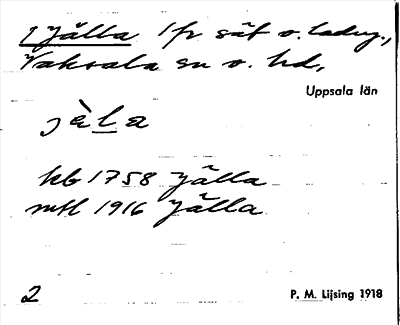 1 Jälla 1/2 sät o. ladug.,
Vaksala sn o. hd,
Uppsala län
jàla
kb 1758 Jälla
mtl 1916 Jälla
2
P. M. Lijsing 1918